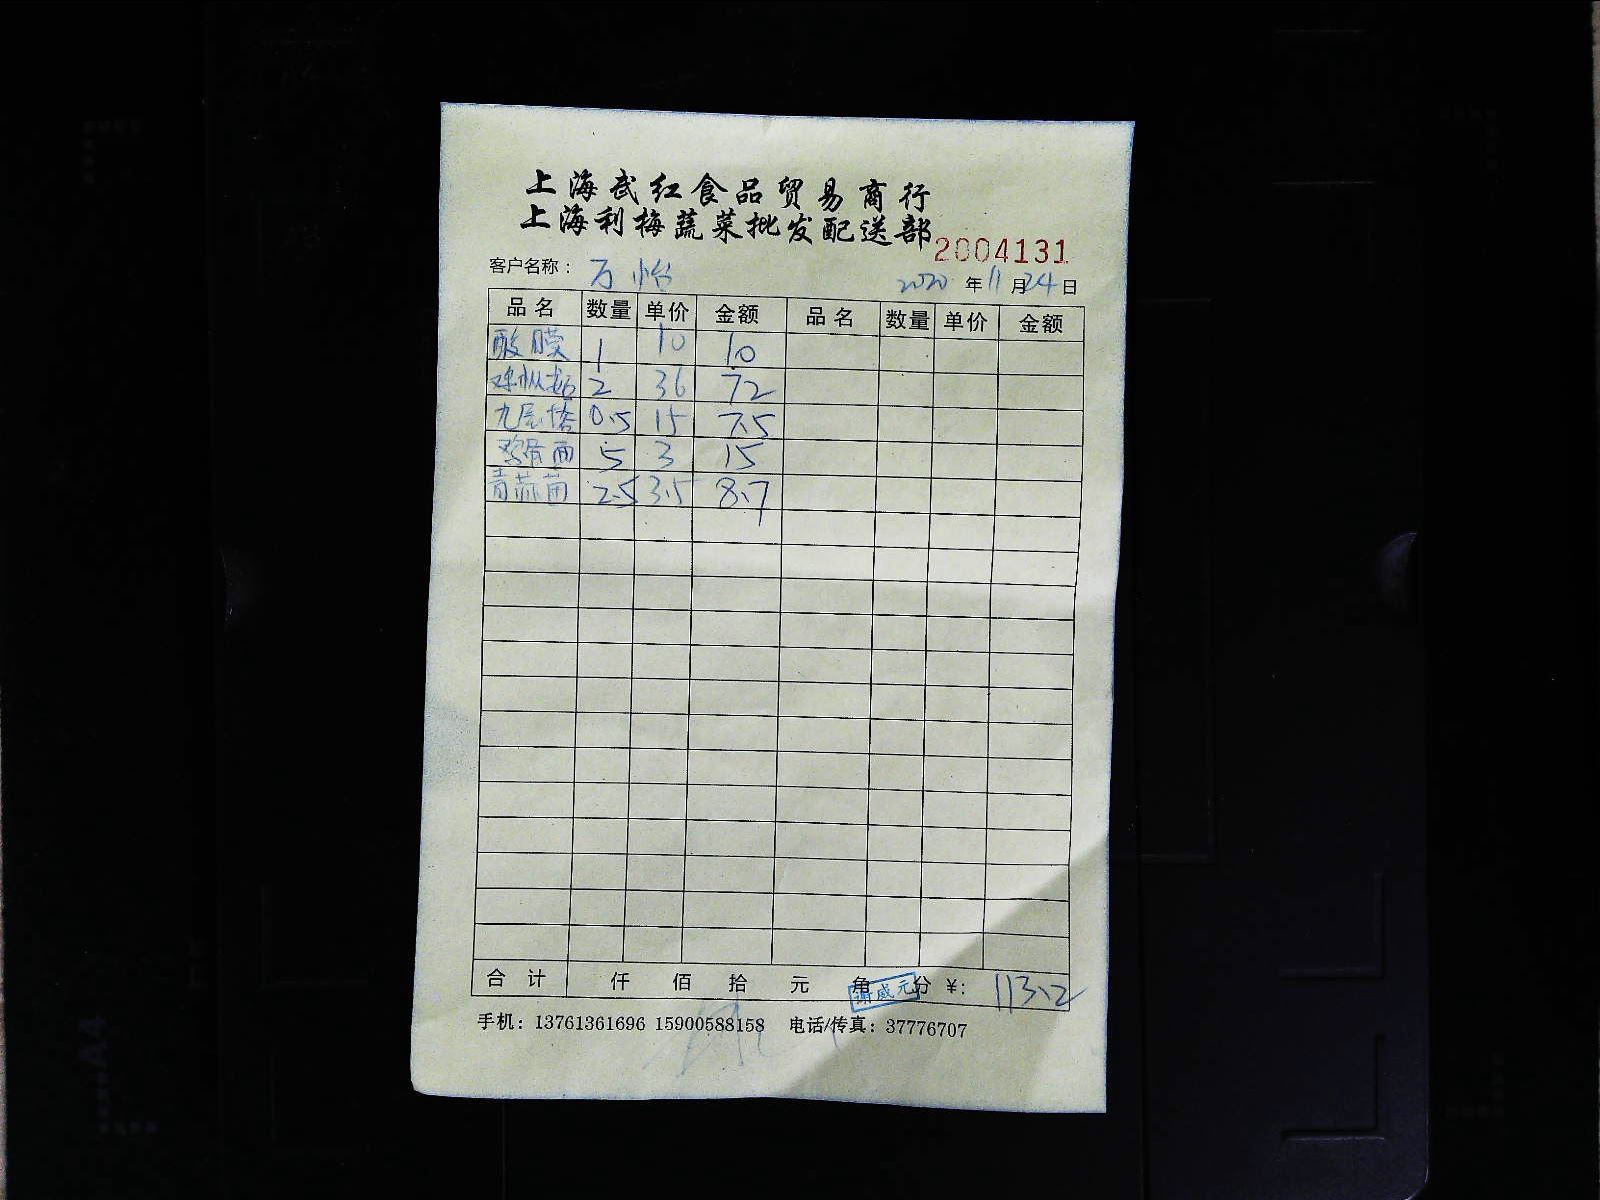 上海武红食品贸易商行
上海利梅蔬菜批发配送部
2004131
客户名称： 万怡 2020 年 11 月 24 日
品名 数量 单价 金额 品名 数量 单价 金额
酸膜 1 10 10
2 36 72
九层塔 0.5 15 7.5
5 3 15
青蒜苗 2.5 3.5 8.7
合计 仟 佰 拾 元 角 分 ¥: 113.2
谢威元
手机：13761361696 15900588158 电话/传真：37776707